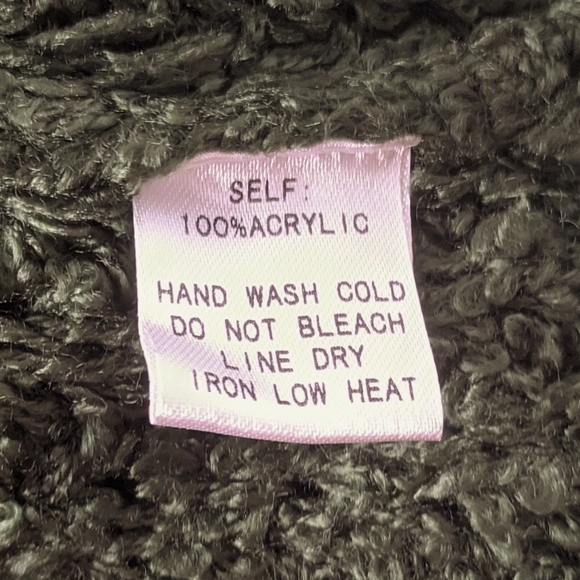 SELF:
100%ACRYLIC
HAND WASH COLD
DO NOT BLEACH
LINE DRY
IRON LOW HEAT